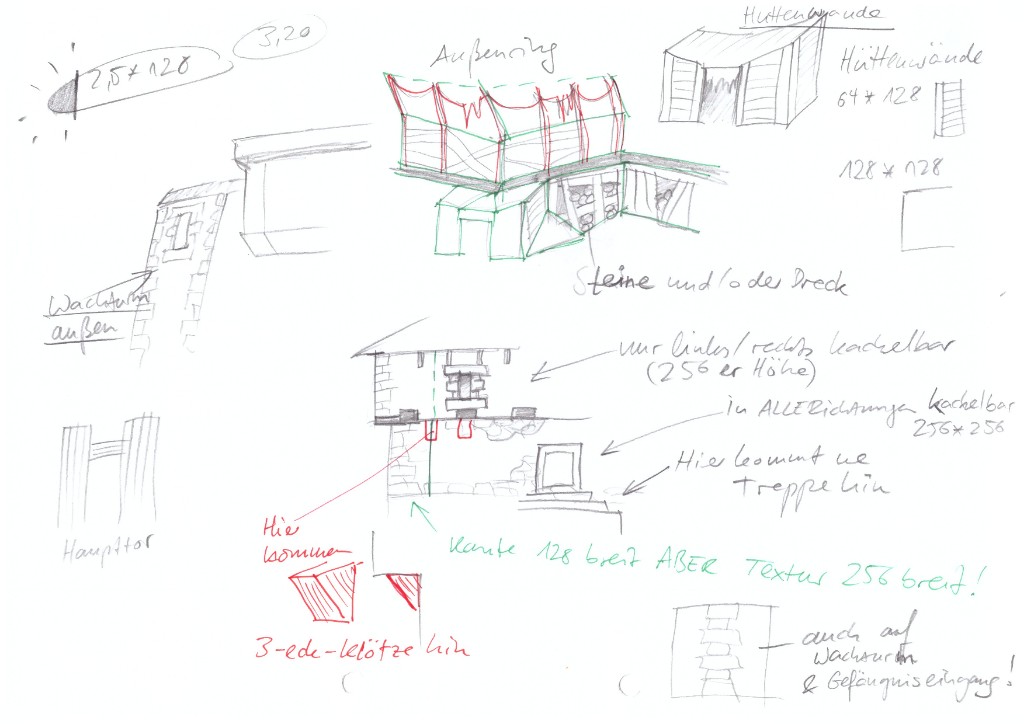 3,20
2,5 * 128
Außenring
Hüttenwände
Hüttenwände
64 * 128
128 * 128
Steine und/oder Dreck
Wachturm
außen
nur links/rechts kachelbar
(256er Höhe)
in ALLE Richtungen kachelbar
256*256
Hier kommt ne
Treppe hin
Haupttor
Hier
kommen
3-eck-klötze hin
Kante 128 breit ABER Textur 256 breit!
auch auf
Wachturm
& Gefängniseingang!